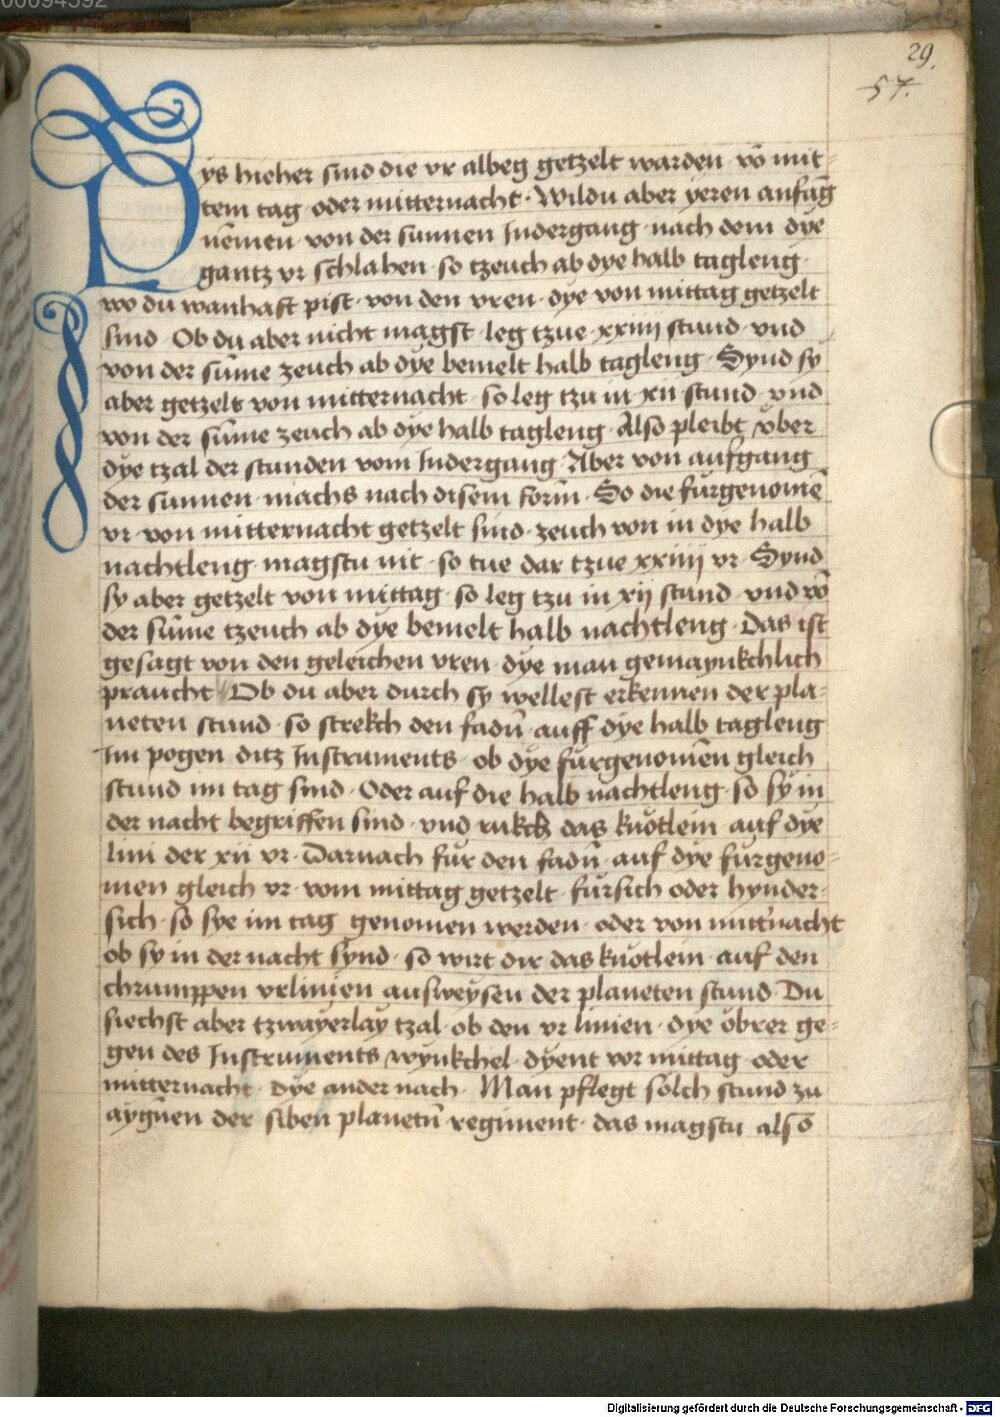 00094592
29.
57.
Bys hieher sind die vr albeg getzelt warden · vō mit-
tem tag · oder mitternacht · Wildu aber yeren anfāg
nēmen · von der sunnen Indergang · nach dem dye
gantz vr schlahen · so tzeuch ab dye halb tagleng ·
wo du wanhaft pist · von den vren · dye von mittag getzelt
sind · Ob du aber nicht magst · leg tzue · xxiiij stund · vnd
von der sūme zeuch ab dye bemelt halb tagleng · Synd sy
aber getzelt von mitternacht · so leg tzu in xii stund · vnd
von der sūme zeuch ab dye halb tagleng · Also pleibt vber
dye tzal der stunden vom Indergang · Aber von aufgang
der sunnen · machs nach disem form̄ · So die fürgenomē
vr · von mitternacht getzelt sind · zeuch von in dye halb
nachtleng · magstu nit · so tue dar tzue xxiiij vr · Synd
sy aber getzelt von mittag · so leg tzu in xij stund · vnd vō
der sūme tzeuch ab dye bemelt halb nachtleng · Das ist
gesagt von den geleichen vren · dye man gemaynkchlich
praucht · Ob du aber durch sy wellest erkennen der pla-
neten stund · so strekch den fadn̄ auff dye halb tagleng
Im pogen ditz Instruments · ob dye fürgenomēn gleich
stund im tag sind · Oder auf die halb nachtleng · so sy in
der nacht begriffen sind · vnd rukch das knötlein auf dye
lini der xii vr · Darnach für den fadn̄ · auf dye fürgeno-
men gleich vr · vom mittag getzelt · fürsich oder hynder-
sich · so sye im tag genomen werden · oder von mitt'nacht
ob sy in der nacht synd · so wirt dir das knötlein · auf den
chrumppen vrlinien ausweysen der planeten stund · Du
siechst aber tzwayerlay tzal · ob den vr linien · dye öbrer ge-
gen des Instruments wynkchel · dyent vor mittag · oder
mitternacht · dye ander nach · Man pflegt sölch stund zu
aygn̄en der siben planetn̄ regiment · das magstu also
Digitalisierung gefördert durch die Deutsche Forschungsgemeinschaft - DFG